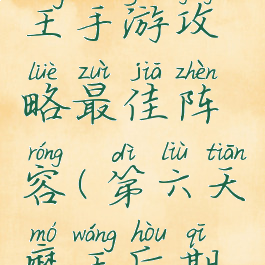 王手游攻
lüè zuì jiā zhèn
略最佳阵
róng dì liù tiān
容(第六天
mó wáng hòu qī
魔王后期